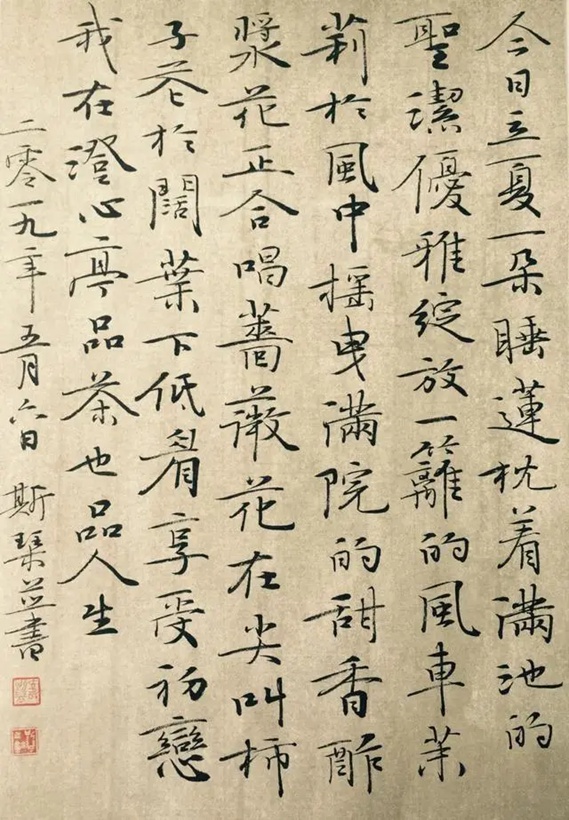 今日立夏一朵睡蓮枕着滿池的
聖潔優雅綻放一籬的風車茉
莉於風中摇曳滿院的甜香酢
漿花正合唱薔薇花在尖叫柿
子花於闊葉下低眉享受初戀
我在澄心亭品茶也品人生
二零一九年五月六日 斯琹並書